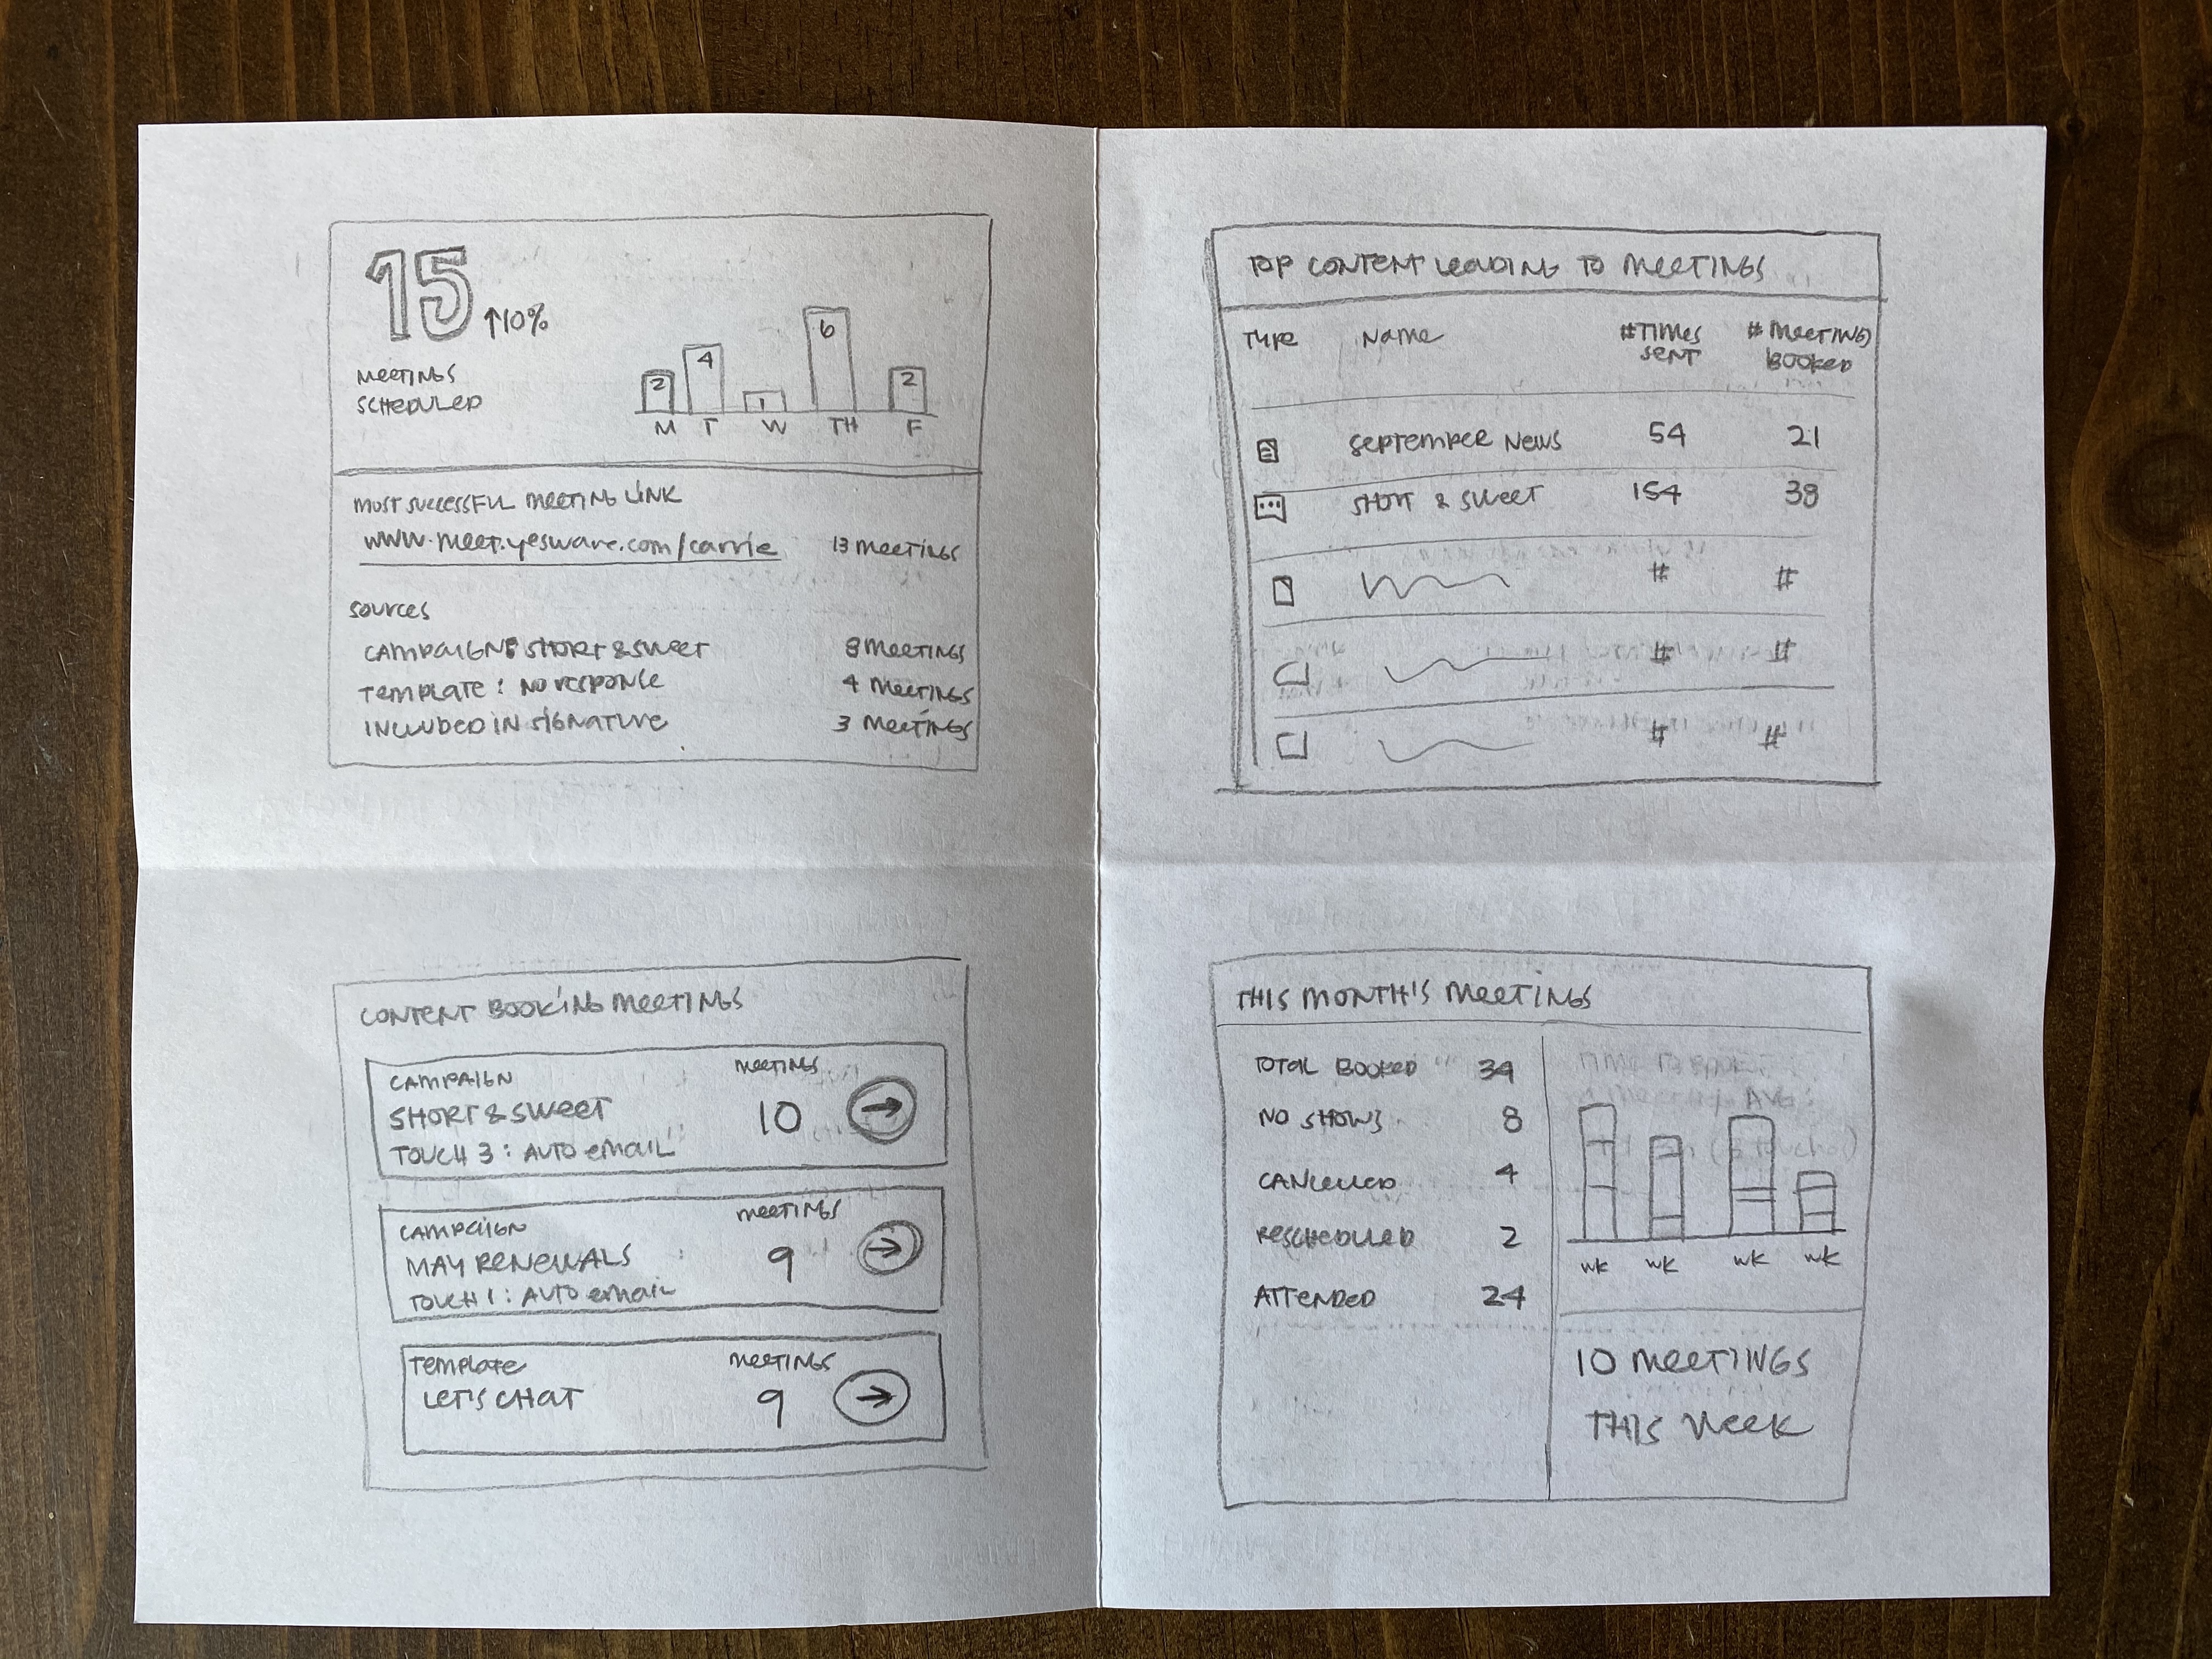 15 ↑10%
MEETINGS
SCHEDULED
2 4 1 6 2
M T W TH F
MOST SUCCESSFUL MEETING LINK
www.meet.yesware.com/carrie 13 MEETINGS
SOURCES
CAMPAIGN: SHORT & SWEET 8 MEETINGS
TEMPLATE: NO RESPONSE 4 MEETINGS
INCLUDED IN SIGNATURE 3 MEETINGS
TOP CONTENT LEADING TO MEETINGS
TYPE NAME #TIMES SENT # MEETINGS BOOKED
SEPTEMBER NEWS 54 21
SHORT & SWEET 154 38
# #
# #
# #
CONTENT BOOKING MEETINGS
CAMPAIGN MEETINGS
SHORT & SWEET 10 →
TOUCH 3: AUTO EMAIL
CAMPAIGN MEETINGS
MAY RENEWALS 9 →
TOUCH 1: AUTO EMAIL
TEMPLATE MEETINGS
LET'S CHAT 9 →
THIS MONTH'S MEETINGS
TOTAL BOOKED 34
NO SHOWS 8
CANCELLED 4
RESCHEDULED 2
ATTENDED 24
WK WK WK WK
10 MEETINGS
THIS WEEK